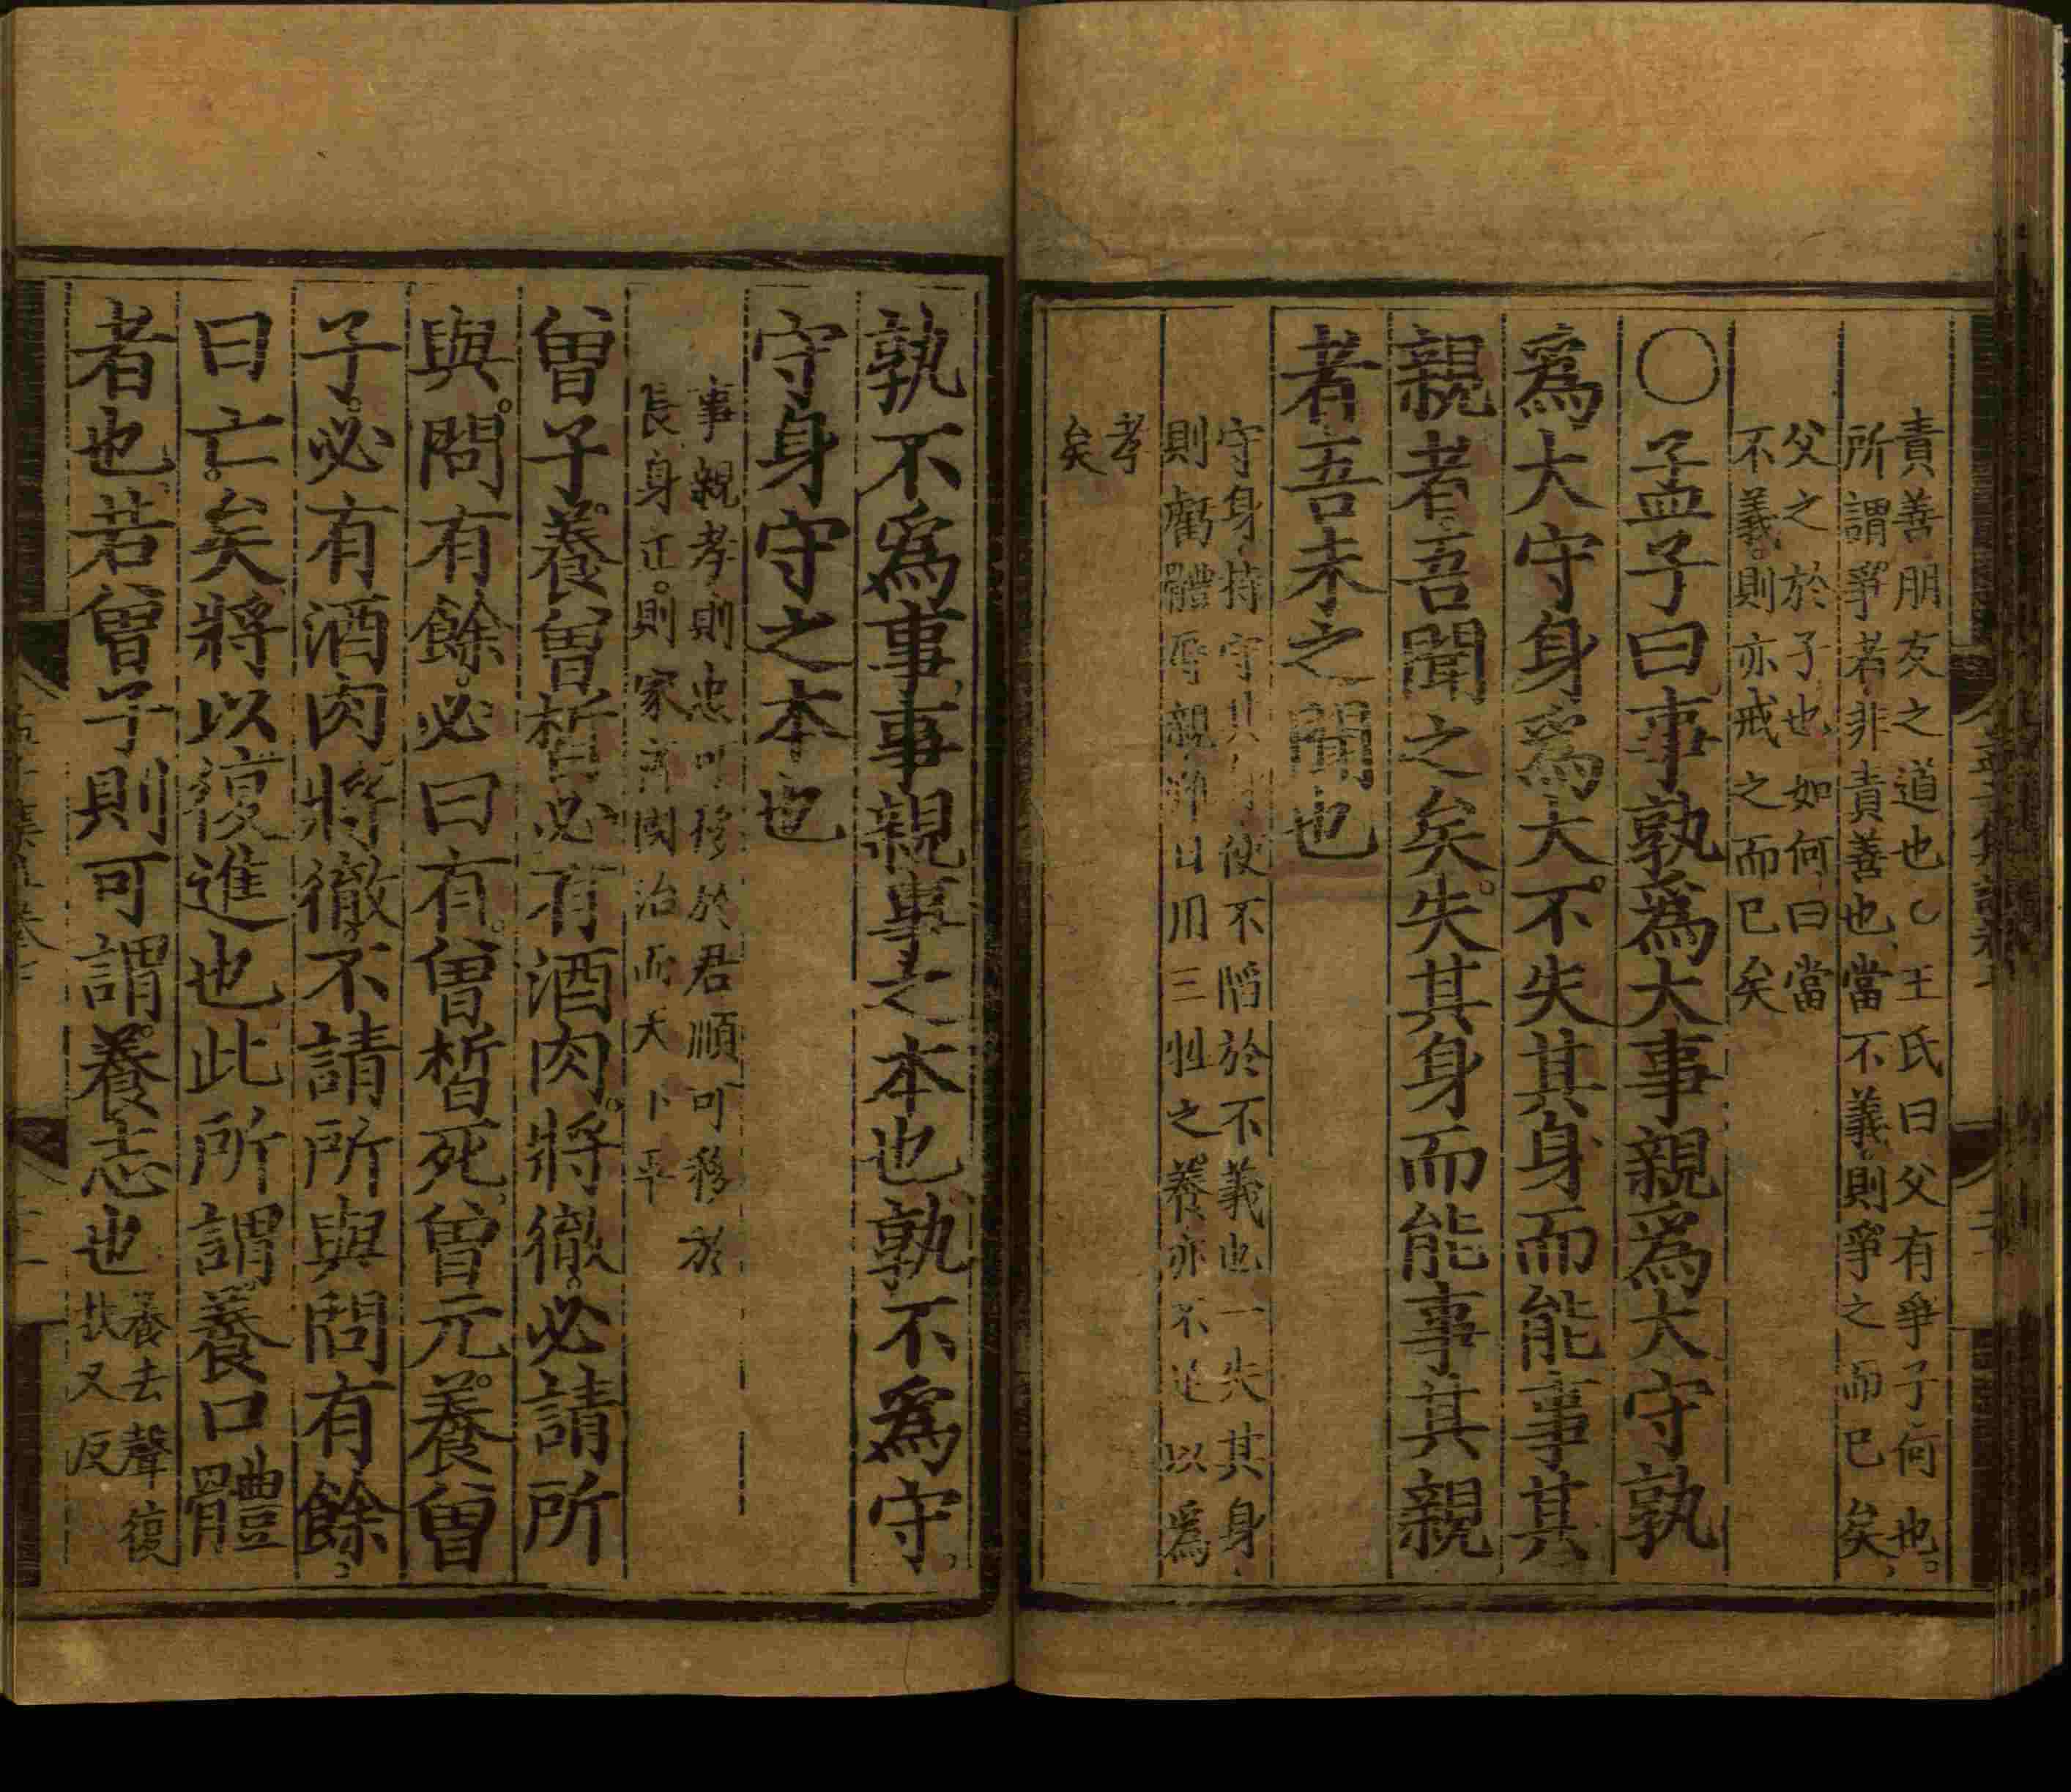 責善朋友之道也○王氏曰父有爭子何也
所謂爭者非責善也當不義則爭之而已矣
父之於子也如何曰當
不義則亦戒之而已矣
○孟子曰事孰爲大事親爲大守孰
爲大守身爲大不失其身而能事其
親者吾聞之矣失其身而能事其親
者吾未之聞也
守身持守其身使不陷於不義也一失其身
則虧體辱親雖日用三牲之養亦不足以爲
孝
矣
孰不爲事事親事之本也孰不爲守
守身守之本也
事親孝則忠可移於君順可移於
長身正則家齊國治而天下平
曾子養曾皙必有酒肉將徹必請所
與問有餘必曰有曾皙死曾元養曾
子必有酒肉將徹不請所與問有餘
曰亡矣將以復進也此所謂養口體
者也若曾子則可謂養志也
養去聲復
扶又反